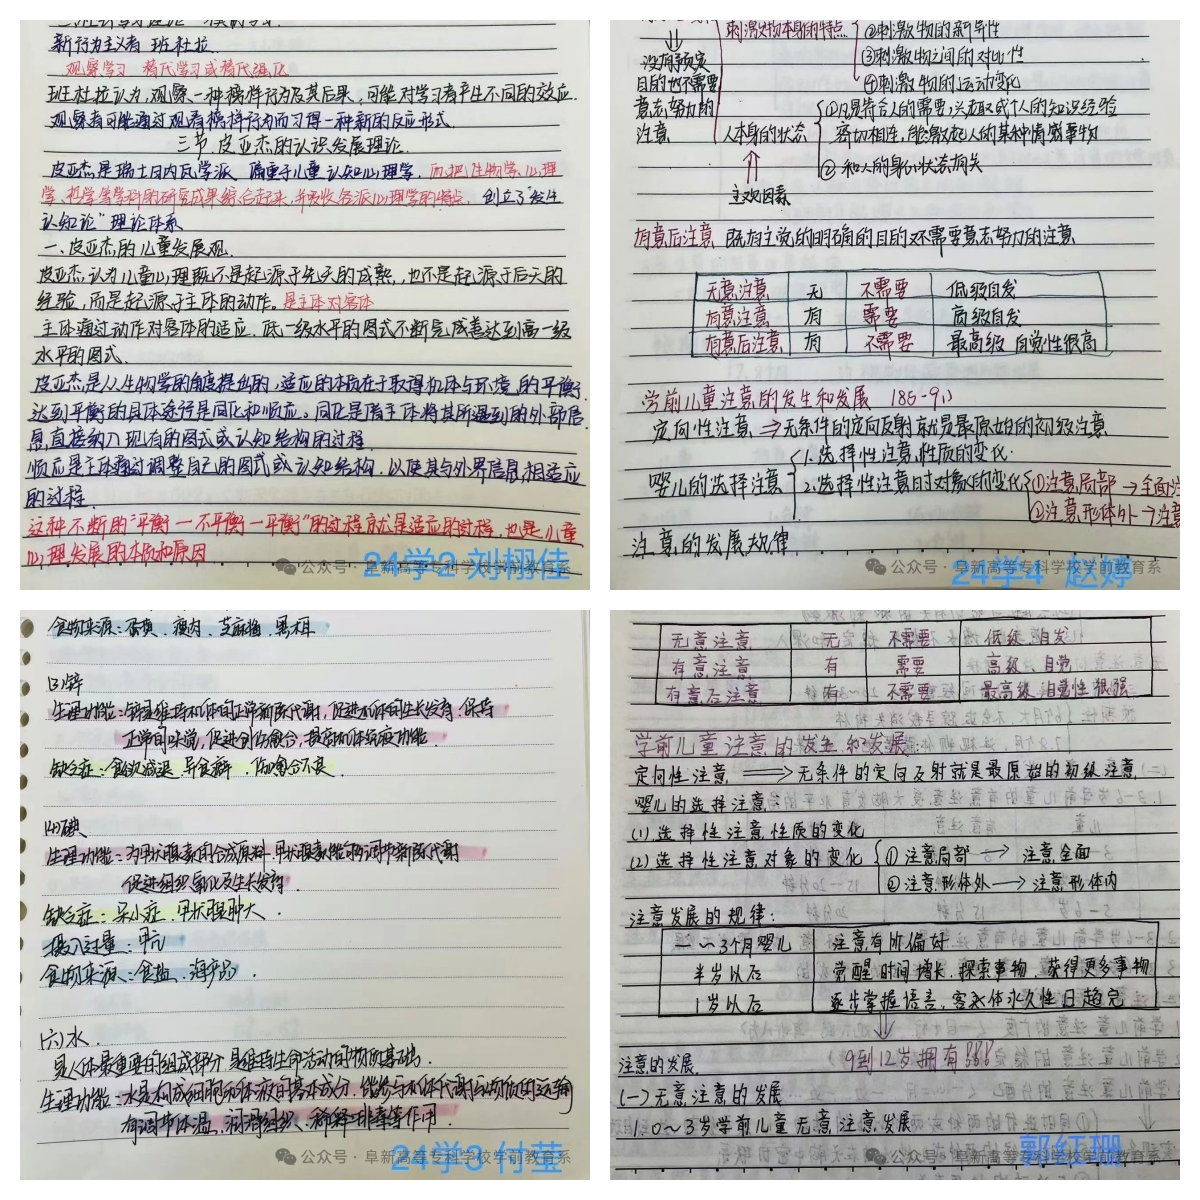 新行为主义者 班杜拉
观察学习 替代学习或替代强化
班杜拉认为,观察一种榜样行为及其后果,可能对学习者产生不同的效应.
观察者可能通过观看榜样行为而习得一种新的反应形式.
三节 皮亚杰的认识发展理论.
皮亚杰是瑞士日内瓦学派、偏重于儿童认知心理学,而把生物学、心理
学、哲学等学科的研究成果综合起来,并吸收各派心理学的特点,创立了"发生
认知论"理论体系
一、皮亚杰的儿童发展观.
皮亚杰认为儿童心理既不是起源于先天的成熟,也不是起源于后天的
经验,而是起源于主体的动作。是主体对客体
主体通过动作对客体的适应.低一级水平的图式不断完成善达到高一级
水平的图式.
皮亚杰是从生物学的角度提出的,适应的本质在于取得机体与环境的平衡,
达到平衡的具体途径是同化和顺应。同化是指主体将其所遇到的外部信
息直接纳入现有的图式或认知结构的过程
顺应是主体通过调整自己的图式或认知结构,以使其与外界信息相适应
的过程
这种不断的"平衡一不平衡一平衡"的过程就是适应的过程,也是儿童
心理发展的本质和原因
公众号·阜新高等专科学校学前教育系
24学2 刘栩佳
刺激物本身的特点 ②刺激物的新异性
③刺激物之间的对比性
④刺激物的运动变化
没有预定
目的也不需要
意志努力的
注意
人本身的状态
①凡是符合人的需要,兴趣或个人的知识经验
密切相连,能激起人的某种情感事物
② 和人的身心状态有关
主观因素
有意后注意 既有主观的明确的目的又不需要意志努力的注意
无意注意 无 不需要 低级自发
有意注意 有 需要 高级自发
有意后注意 有 不需要 最高级 自觉性很高
学前儿童注意的发生和发展
定向性注意 ⇒ 无条件的定向反射就是最原始的初级注意
婴儿的选择注意
1.选择性注意性质的变化.
2.选择性注意时对象的变化
①注意局部 → 全面注
②注意形体外 → 注意
注意的发展规律
公众号·阜新高等专科学校学前教育系
24学4 赵婷
食物来源:蛋黄、瘦肉、芝麻酱、黑木耳
(3)锌
生理功能:锌是维持机体的正常新陈代谢,促进机体的生长发育.保持
正常的味觉,促进创伤愈合,提高机体免疫功能.
缺乏症:食欲减退、异食癖、伤口愈合不良.
(4)碘
生理功能:为甲状腺素的合成原料.甲状腺素能够调节新陈代谢
促进组织氧化及生长发育.
缺乏症:呆小症、甲状腺肿大.
摄入过量:甲亢
食物来源:食盐、海产品.
(六)水.
是人体最重要的组成部分,是维持生命活动的物质基础.
生理功能:水是构成细胞和体液的基本成分,能参与机体代谢运动物质的运输
有调节体温、润滑组织、稀释排毒等作用
公众号·阜新高等专科学校学前教育系
24学3 付莹
无意注意 无 不需要 低级、自发
有意注意 有 需要 高级、自觉
有意后注意 有 不需要 最高级 自觉性很强
学前儿童注意的发生和发展:
定向性注意 ⇒ 无条件的定向反射就是最原始的初级注意.
婴儿的选择注意:
(1)选择性注意性质的变化
(2)选择性注意对象的变化
①注意局部 → 注意全面
②注意形体外 → 注意形体内
注意发展的规律:
一~3个月婴儿 注意有所偏好
半岁以后 觉醒时间增长,探索事物、获得更多事物
1岁以后 逐步掌握语言,客永体永久性日趋完
9到12岁拥有!!!
注意的发展.
(一)无意注意的发展
1.0~3岁学前儿童无意注意发展
公众号·阜新高等专科学校学前教育系
郭红珊